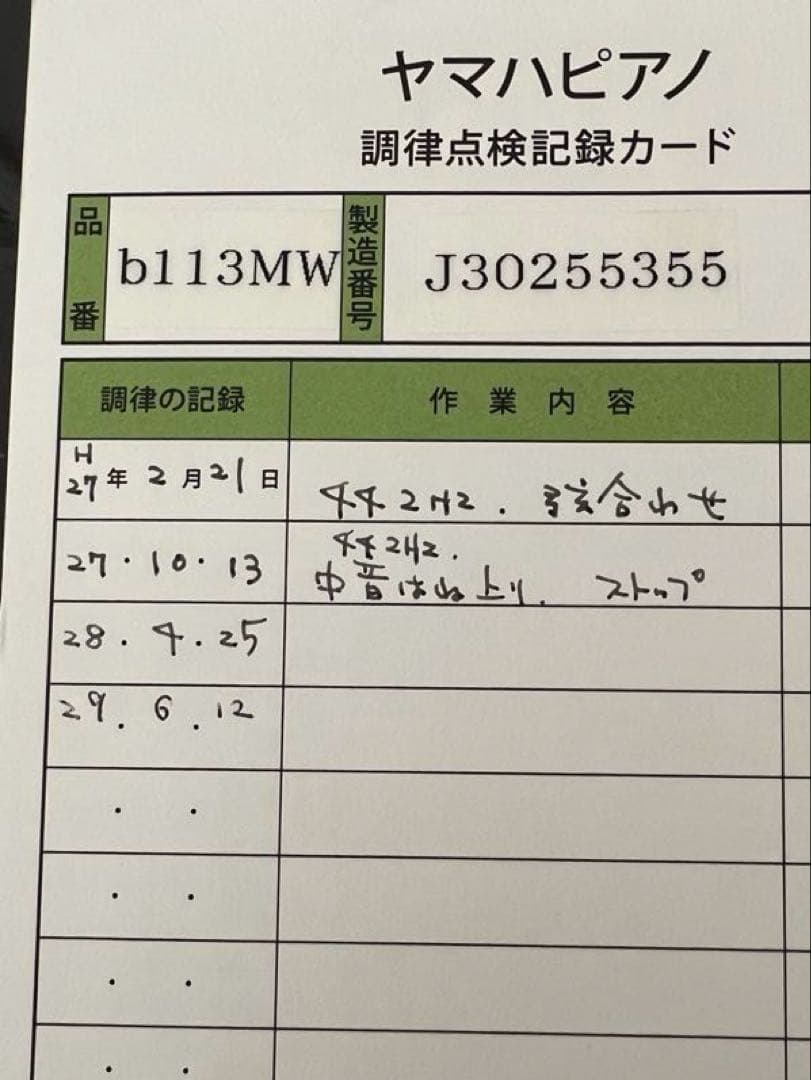 ヤマハピアノ
調律点検記録カード
品番 b113MW 製造番号 J30255355
調律の記録 作業内容
H
27年 2月21日 442Hz. 弦合わせ
27・10・13 442Hz.
中音はね上り. ストップ
28.4.25
29.6.12
・ ・
・ ・
・ ・
・ ・